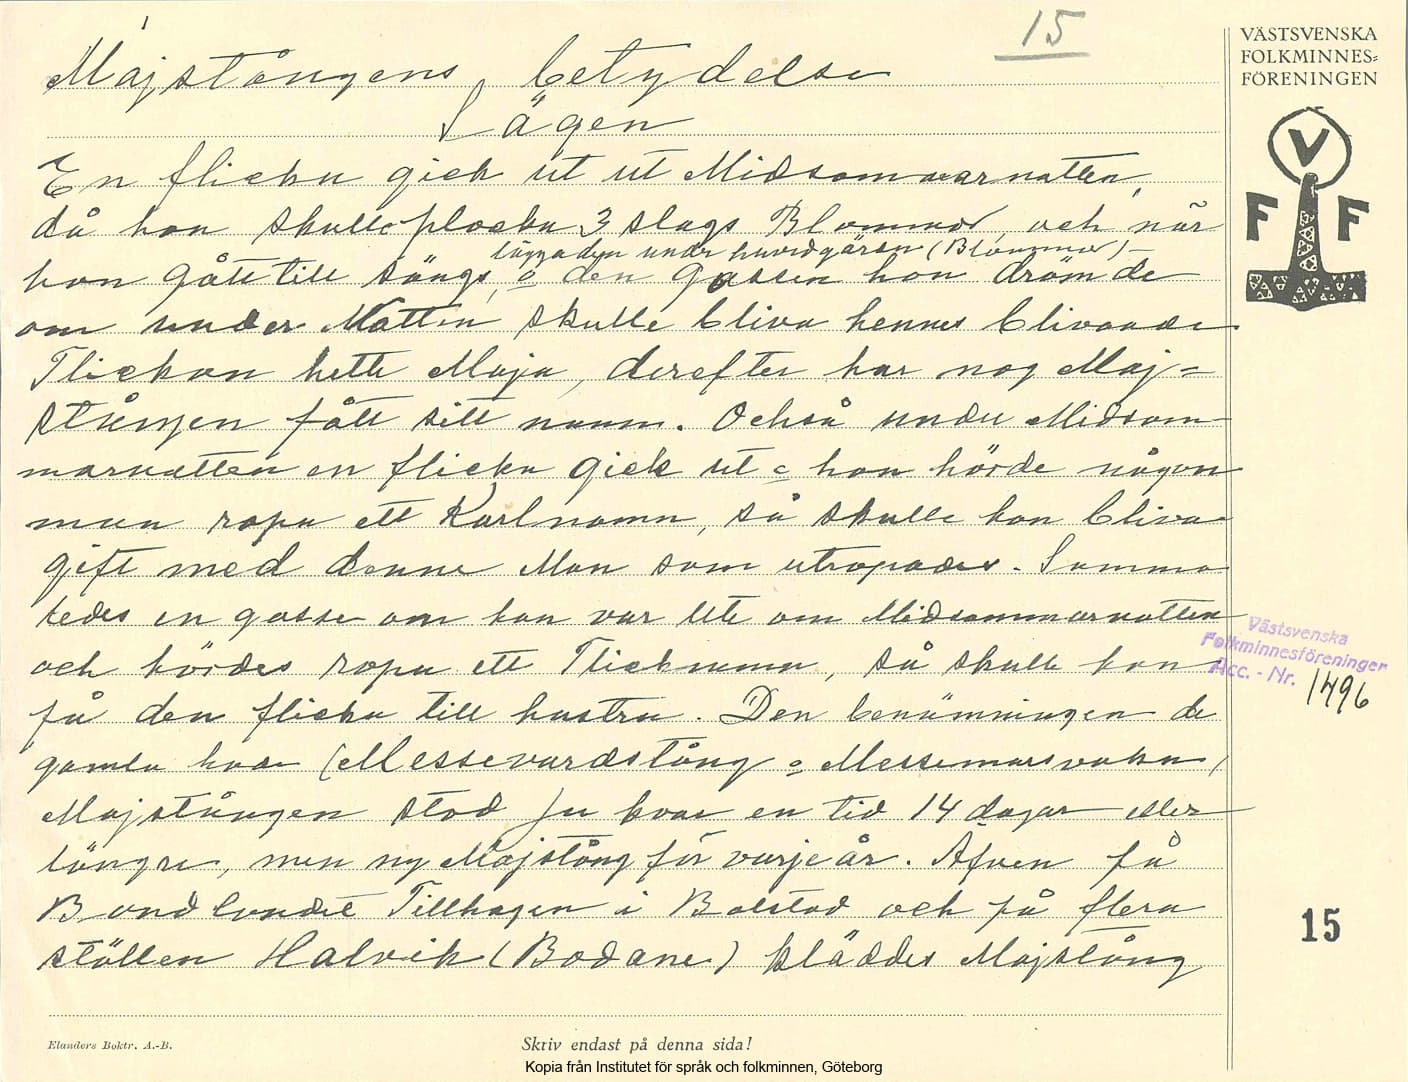 15
VÄSTSVENSKA
FOLKMINNES-
FÖRENINGEN
V
F F
Majstångens betydelse
Sägen
En flicka gick ut ut Midsommarnatten,
då hon skulle plocka 3 slags Blommor, och när
lägga dem under huvudgärden (Blommor)
hon gått till sängs, o den gossen hon drömde
om under Natten skulle bliva hennes blivande
Flickan hette Maja, derefter har nog Maj-
stången fått sitt namn. Också under Midsom
marnatten en flicka gick ut o hon hörde någon
man ropa ett Karlnamn, så skulle hon bliva
gift med denne Man som utropades. Samma
ledes en gosse om han var ute om Midsommarnatten
och hördes ropa ett Flicknamn, så skulle han
få den flicka till hustru. Den benämningen de
gamla hade (Messevardstång o Messemarsvaka)
Majstången stod ju kvar en tid 14 dagar eller
längre, men ny Majstång för varje år. Afven på
Bondlandet Tillhagen i Bolstad och på flera
ställen Halvik (Bodane) kläddes Majstång
Västsvenska
Folkminnesföreningen
Acc. - Nr. 1496
15
Elanders Boktr. A.-B.
Skriv endast på denna sida!
Kopia från Institutet för språk och folkminnen, Göteborg